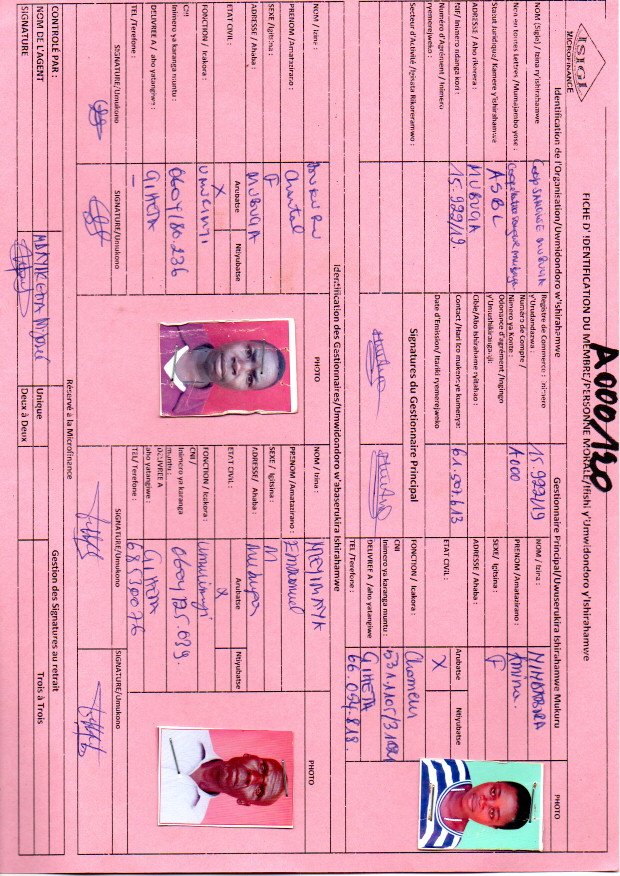 ISIGI
MICROFINANCE
A000/120
FICHE D' IDENTIFICATION DU MEMBRE/PERSONNE MORALE/Ifishi y'Umwidondoro y'Ishirahamwe
Identification de l'Organisation/Uwmidondoro w'ishirahamwe
NOM (Sigle) / Izina ry'ishirahamwe
Coop SANGWE MUBUGA
Nom en toutes Lettres /Mumajambo yose :
Statut Juridique/ Kamere y'ishirahamwe
ASBL
ADRESSE / Aho rikorera :
MUBUGA
NIF/ Inimero ndanga kori :
15.922/19
Numéro d'Agrément / Inimero
ryemererejweko :
Secteur d'Activité /Igisata Rikoreramwo :
Registre de Commerce: Inimero
y'Urudandarwa :
15.922/19
Numéro de Compte /
Nimero ya Konte :
A100
Odonnance d'agrément /Ingingo
y'Umushikiranganji:
Cible/Abo Ishirahamwe ryitaho :
Contact /Itari Ico mukeneye kumenya:
61.507.613
Date d'Emission/ Itariki ryemerejweko
Signatures du Gestionnaire Principal
Gestionnaire Principal/Uwuserukira Ishirahamwe Mukuru
NOM / Izina :
PRENOM /Amatazirano :
Amina.
SEXE/ Igitsina :
F
ADRESSE / Ahaba :
ETAT CIVIL :
Arubatse
Ntiyubatse
X
FONCTION / Icakora :
Chomeur
CNI
Inimero ya karanga muntu :
DELIVREE A /aho yatangiwe
GIHETA
TEL /Terefone :
66.054.818
PHOTO
Identification des Gestionnaires/Umwidondoro w'abaserukira Ishirahamwe
NOM / Izina :
PRENOM /Amatazirano :
Chantal
SEXE /Igitsina :
F
ADRESSE/ Ahaba :
MUBUGA
ETAT CIVIL :
Arubatse
Ntiyubatse
X
FONCTION / Icakora :
Umurimyi
Inimero ya karanga muntu :
0604/180.236
DELIVREE A / aho yatangiwe :
GIHETA
TEL /Terefone :
—
SIGNATURE/Umukono
SIGNATURE/Umukono
PHOTO
NOM / Izina :
PRENOM /Amatazirano :
Emmanuel
SEXE / Igitsina :
M
ADRESSE/ Ahaba :
Mubuga
ETAT CIVIL :
Arubatse
Ntiyubatse
X
FONCTION / Icakora :
Umurimyi
CNI /
Inimero ya karanga
muntu :
0604/175.039.
DELIVREE A
aho yatangiwe :
GIHETA
TEL/ Terefone :
68.530076
SIGNATURE/Umukono
SIGNATURE/Umukono
PHOTO
Réservé à la Microfinance
CONTRÔLÉ PAR :
NOM DE L'AGENT
SIGNATURE
Gestion des Signatures au retrait
Unique
Deux à Deux
Trois à Trois